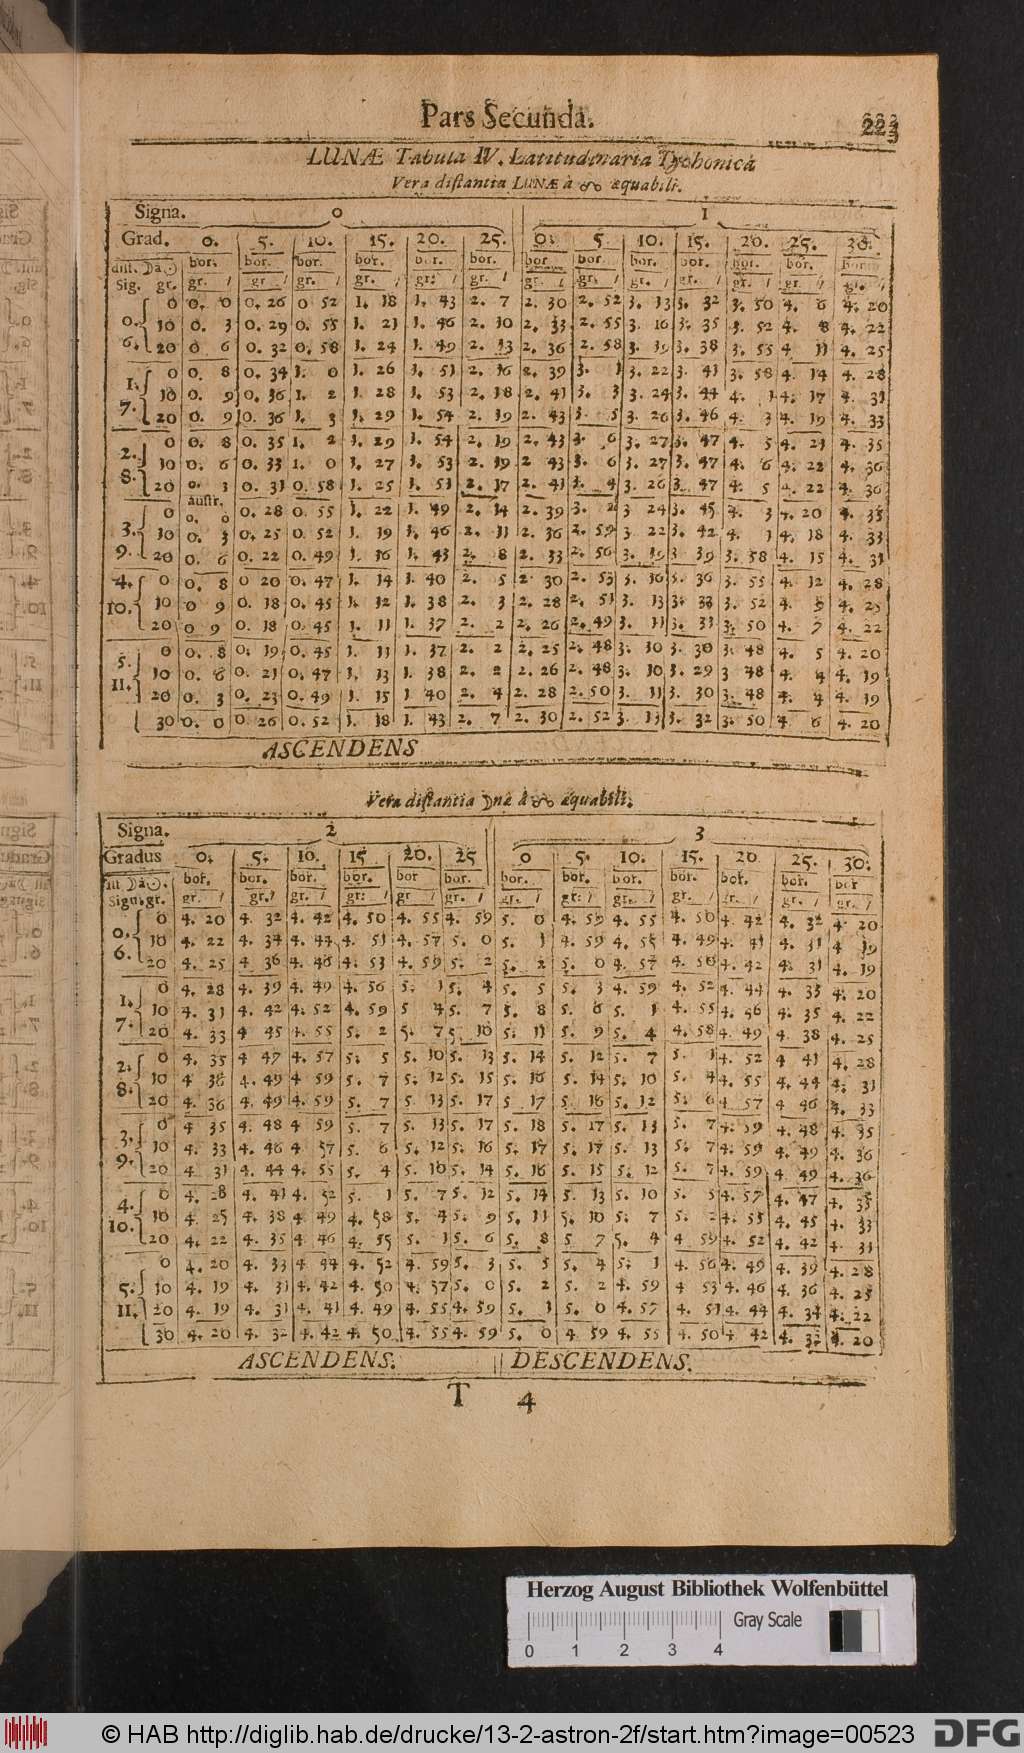 Pars Secunda.
223
LUNÆ Tabula IV. Latitudinaria Tychonica
Vera distantia LUNÆ à ☊ æquabili.
Signa. 0 1
Grad. 0. 5. 10. 15. 20. 25. 0. 5 10. 15. 20. 25. 30.
bor. bor. bor. bor. bor. bor. bor. bor. bor. bor. bor. bor.
Sig. gr. gr. gr gr. gr. gr. gr. gr. gr. gr. gr. gr. gr.
0 0. 0 0. 26 0 52 1. 18 1. 43 2. 7 2. 30 2. 52 3. 13 3. 32 3. 50 4. 6 4. 20
0. 10 0. 3 0. 29 0. 55 1. 21 1. 46 2. 10 2. 33 2. 55 3. 16 3. 35 3. 52 4. 8 4. 22
6. 20 0 6 0. 32 0. 58 1. 24 1. 49 2. 13 2. 36 2. 58 3. 19 3. 38 3. 55 4 11 4. 25
0 0. 8 0. 34 1. 0 1. 26 1. 51 2. 16 2. 39 3. 1 3. 22 3. 41 3. 58 4. 14 4. 28
1. 10 0. 9 0. 36 1. 2 1. 28 1. 53 2. 18 2. 41 3. 3 3. 24 3. 44 4. 1 4. 17 4. 31
7. 20 0. 9 0. 36 1. 3 1. 29 1. 54 2. 19 2. 43 3. 5 3. 26 3. 46 4. 3 4. 19 4. 33
0 0. 8 0. 35 1. 2 1. 29 1. 54 2. 19 2. 43 3. 6 3. 27 3. 47 4. 5 4. 21 4. 35
2. 10 0. 6 0. 33 1. 0 1. 27 1. 53 2. 19 2 43 3. 6 3. 27 3. 47 4. 6 4. 22 4. 36
8. 20 0. 3 0. 31 0. 58 1. 25 1. 51 2. 17 2. 41 3. 4 3. 26 3. 47 4. 5 4. 22 4. 36
austr.
0 0. 0 0. 28 0. 55 1. 22 1. 49 2. 14 2. 39 3. 2 3 24 3. 45 4. 3 4. 20 4. 35
3. 10 0. 3 0. 25 0. 52 1. 19 1. 46 2. 11 2. 36 2. 59 3 22 3. 42 4. 1 4. 18 4. 33
9. 20 0. 6 0. 22 0. 49 1. 16 1. 43 2. 8 2. 33 2. 56 3. 19 3 39 3. 58 4. 15 4. 31
4. 0 0. 8 0 20 0. 47 1. 14 1. 40 2. 5 2 30 2. 53 3. 16 3. 36 3. 55 4. 12 4. 28
10. 10 0 9 0. 18 0. 45 1. 12 1. 38 2. 3 2. 28 2. 51 3. 13 3. 33 3. 52 4. 9 4. 25
20 0 9 0. 18 0. 45 1. 11 1. 37 2. 2 2. 26 2. 49 3. 11 3. 31 3. 50 4. 7 4. 22
5. 0 0. 8 0. 19 0. 45 1. 11 1. 37 2. 2 2. 25 2. 48 3. 10 3. 30 3. 48 4. 5 4. 20
11. 10 0. 6 0. 21 0. 47 1. 13 1. 38 2. 2 2. 26 2. 48 3. 10 3. 29 3 48 4. 4 4. 19
20 0. 3 0. 23 0. 49 1. 15 1 40 2. 4 2. 28 2. 50 3. 11 3. 30 3. 48 4. 4 4. 19
30 0. 0 0. 26 0. 52 1. 18 1. 43 2. 7 2. 30 2. 52 3. 13 3. 32 3. 50 4 6 4. 20
ASCENDENS
Vera distantia ☽næ à ☊ æquabili.
Signa. 2 3
Gradus 0. 5. 10. 15 20. 25 0 5. 10. 15. 20 25. 30.
bor. bor. bor. bor. bor bor. bor. bor. bor. bor. bor. bor. bor
Sign. gr. gr. gr. gr. gr: gr. gr. gr. gr: gr. gr. gr. gr. gr.
0 4. 20 4. 32 4. 42 4. 50 4. 55 4. 59 5. 0 4. 59 4. 55 4. 50 4. 42 4. 32 4. 20
0. 10 4. 22 4. 34 4. 44 4. 51 4. 57 5. 0 5. 1 4. 59 4. 55 4. 49 4. 41 4. 31 4 19
6. 20 4. 25 4 36 4. 46 4. 53 4. 59 5. 2 5. 2 5. 0 4. 57 4. 50 4. 42 4. 31 4. 19
0 4. 28 4. 39 4. 49 4. 56 5. 1 5. 4 5. 5 5. 3 4. 59 4. 52 4. 44 4. 33 4. 20
1. 10 4. 31 4. 42 4. 52 4. 59 5 4 5. 7 5. 8 5. 6 5. 1 4. 55 4. 46 4. 35 4. 22
7. 20 4. 33 4 45 4. 55 5. 2 5. 7 5. 10 5. 11 5. 9 5. 4 4. 58 4. 49 4. 38 4. 25
2. 0 4. 35 4 47 4. 57 5. 5 5. 10 5. 13 5. 14 5. 12 5. 7 5. 1 4. 52 4 41 4. 28
8. 10 4 36 4. 49 4 59 5. 7 5. 12 5. 15 5. 16 5. 14 5. 10 5. 4 4. 55 4. 44 4. 31
20 4. 36 4. 49 4. 59 5. 7 5. 13 5. 17 5 17 5. 16 5. 12 5. 6 4 57 4 46 4. 33
3. 0 4 35 4. 48 4 59 5. 7 5. 13 5. 17 5. 18 5. 17 5. 13 5. 7 4. 59 4. 48 4. 35
9. 10 4. 33 4. 46 4 57 5. 6 5. 12 5. 16 5. 17 5. 17 5. 13 5. 7 4. 59 4. 49 4. 36
20 4. 31 4. 44 4. 55 5. 4 5. 10 5. 14 5. 16 5. 15 5. 12 5. 7 4. 59 4. 49 4. 36
4. 0 4. 28 4. 41 4. 52 5. 1 5. 7 5. 12 5. 14 5. 13 5. 10 5. 5 4. 57 4. 47 4. 35
10. 10 4. 25 4. 38 4. 49 4. 58 5. 4 5. 9 5. 11 5. 10 5. 7 5. 2 4. 55 4. 45 4. 33
20 4. 22 4. 35 4 46 4. 55 5. 1 5. 6 5. 8 5. 7 5. 4 4 59 4. 52 4. 42 4. 31
0 4. 20 4. 33 4. 44 4. 52 4. 59 5. 3 5. 5 5. 4 5. 1 4. 56 4. 49 4. 39 4. 28
5. 10 4. 19 4. 31 4. 42 4. 50 4. 57 5. 0 5. 2 5. 2 4. 59 4 53 4. 46 4. 36 4. 25
11. 20 4. 19 4. 31 4. 41 4. 49 4. 55 4. 59 5. 1 5. 0 4. 57 4. 51 4. 44 4. 34 4. 22
30 4. 20 4. 32 4. 42 4. 50 4. 55 4. 59 5. 0 4 59 4. 55 4. 50 4. 42 4. 32 4. 20
ASCENDENS. DESCENDENS.
T 4
Herzog August Bibliothek Wolfenbüttel
Gray Scale
0 1 2 3 4
© HAB http://diglib.hab.de/drucke/13-2-astron-2f/start.htm?image=00523
DFG